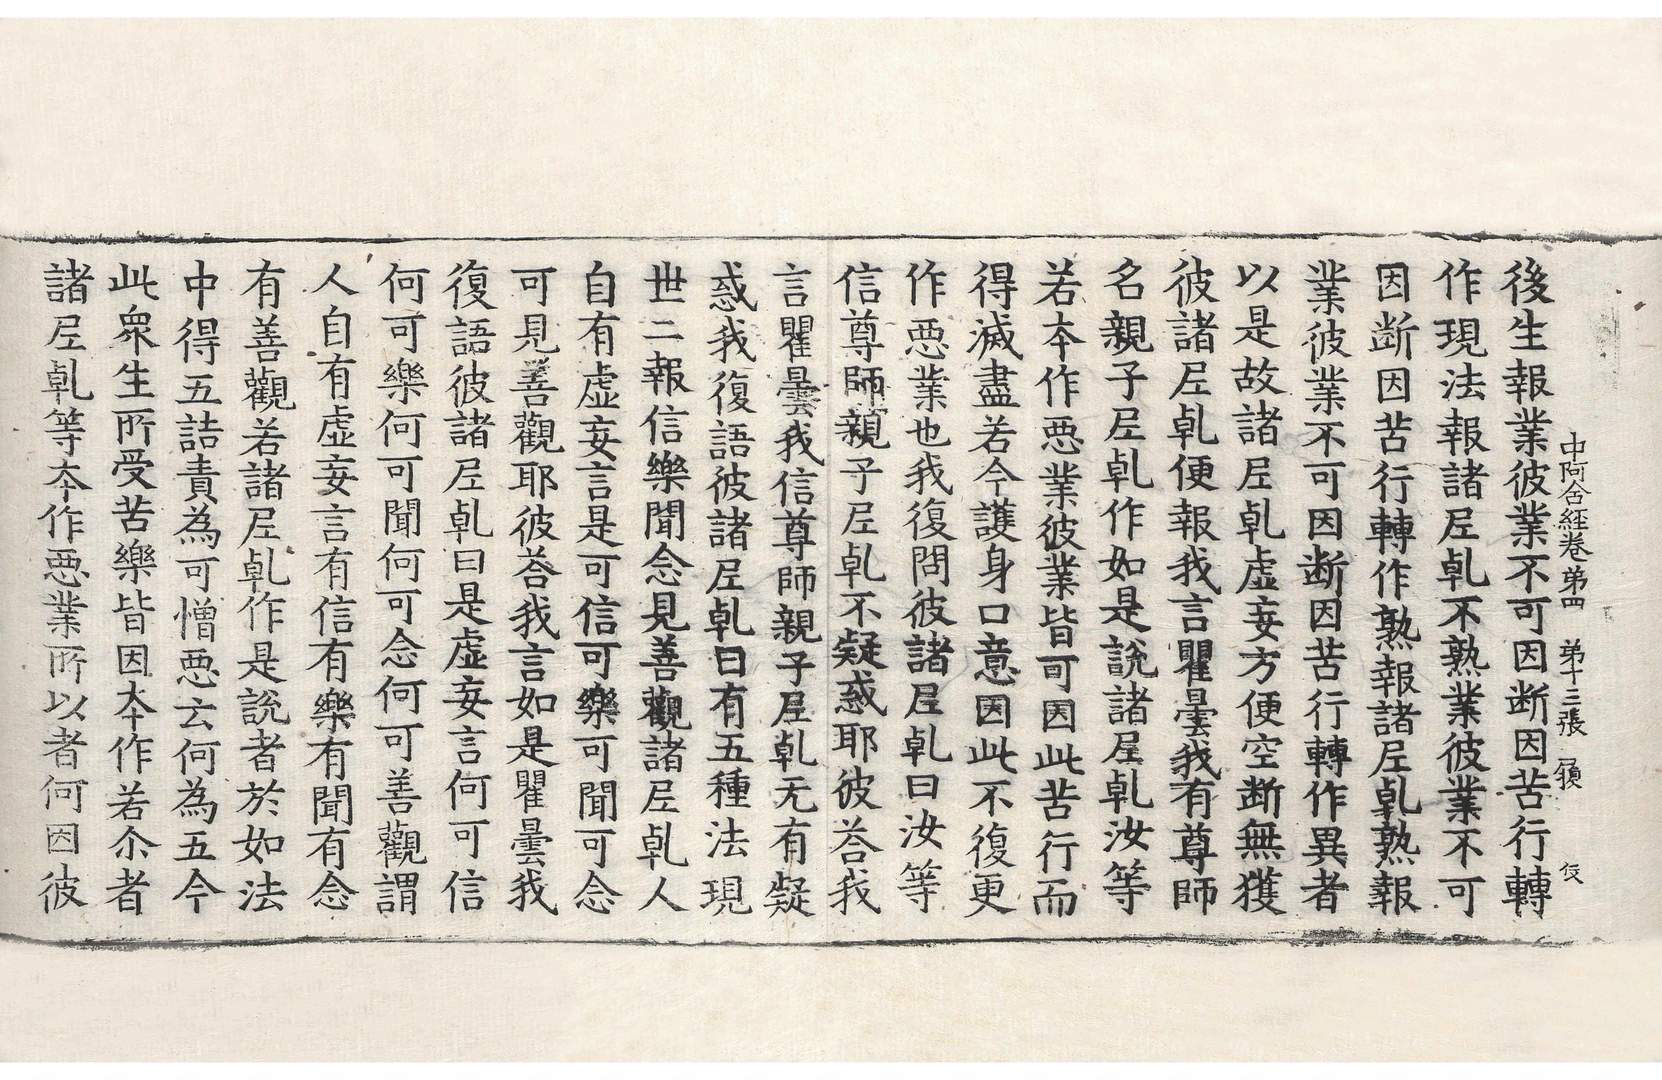 中阿含経卷第四 第十三張 履
後生報業彼業不可因断因苦行轉
作現法報諸尼乹不熟業彼業不可
因断因苦行轉作熟報諸尼乹熟報
業彼業不可因断因苦行轉作異者
以是故諸尼乹虚妄方便空断無獲
彼諸尼乹便報我言瞿曇我有尊師
名親子尼乹作如是說諸尼乹汝等
若夲作悪業彼業皆可因此苦行而
得滅盡若今護身口意因此不復更
作悪業也我復問彼諸尼乹曰汝等
信尊師親子尼乹不疑惑耶彼荅我
言瞿曇我信尊師親子尼乹无有疑
惑我復語彼諸尼乹曰有五種法現
世二報信樂聞念見善觀諸尼乹人
自有虚妄言是可信可樂可聞可念
可見善觀耶彼荅我言如是瞿曇我
復語彼諸尼乹曰是虚妄言何可信
何可樂何可聞何可念何可善觀謂
人自有虚妄言有信有樂有聞有念
有善觀若諸尼乹作是說者於如法
中得五詰責為可憎悪云何為五今
此衆生所受苦樂皆因夲作若尒者
諸尼乹等夲作悪業所以者何因彼